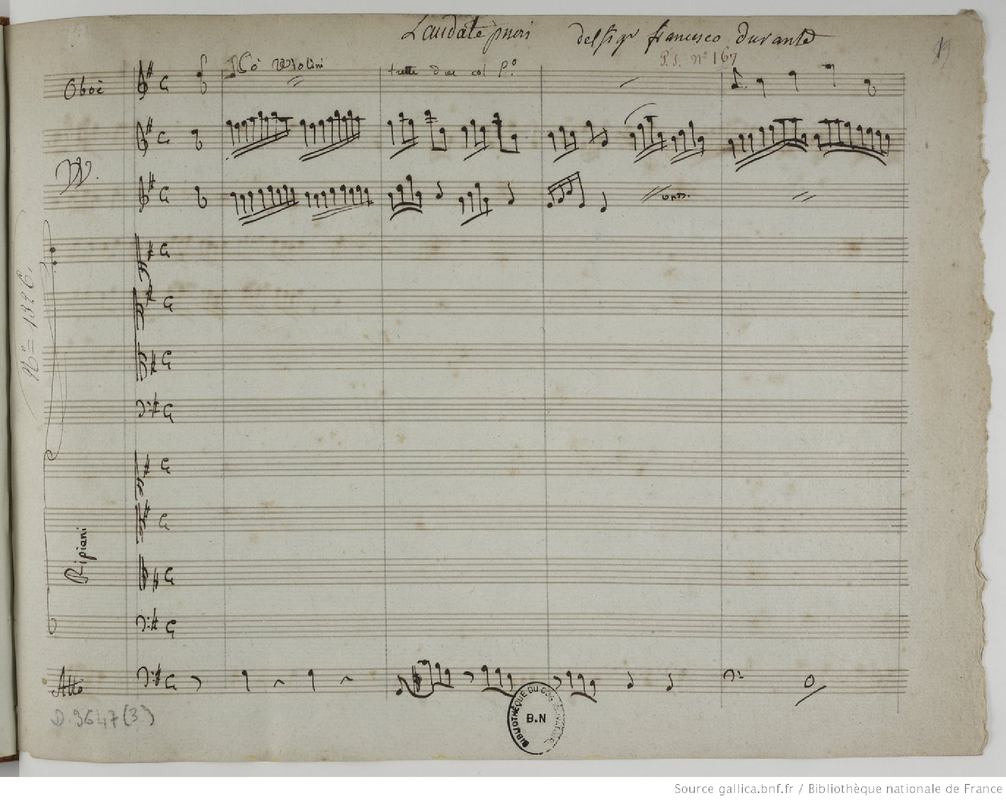 Laudate pueri del Sigr francesco durante
19
P.S. n° 167
Oboè
Co' Violini
tutti due col P.°
VV.
unis.
N° = 1326.
Ripieni
Atto
D.9647(3)
BIBLIOTHÈQUE DU CONSERVATOIRE
B.N
Source gallica.bnf.fr / Bibliothèque nationale de France